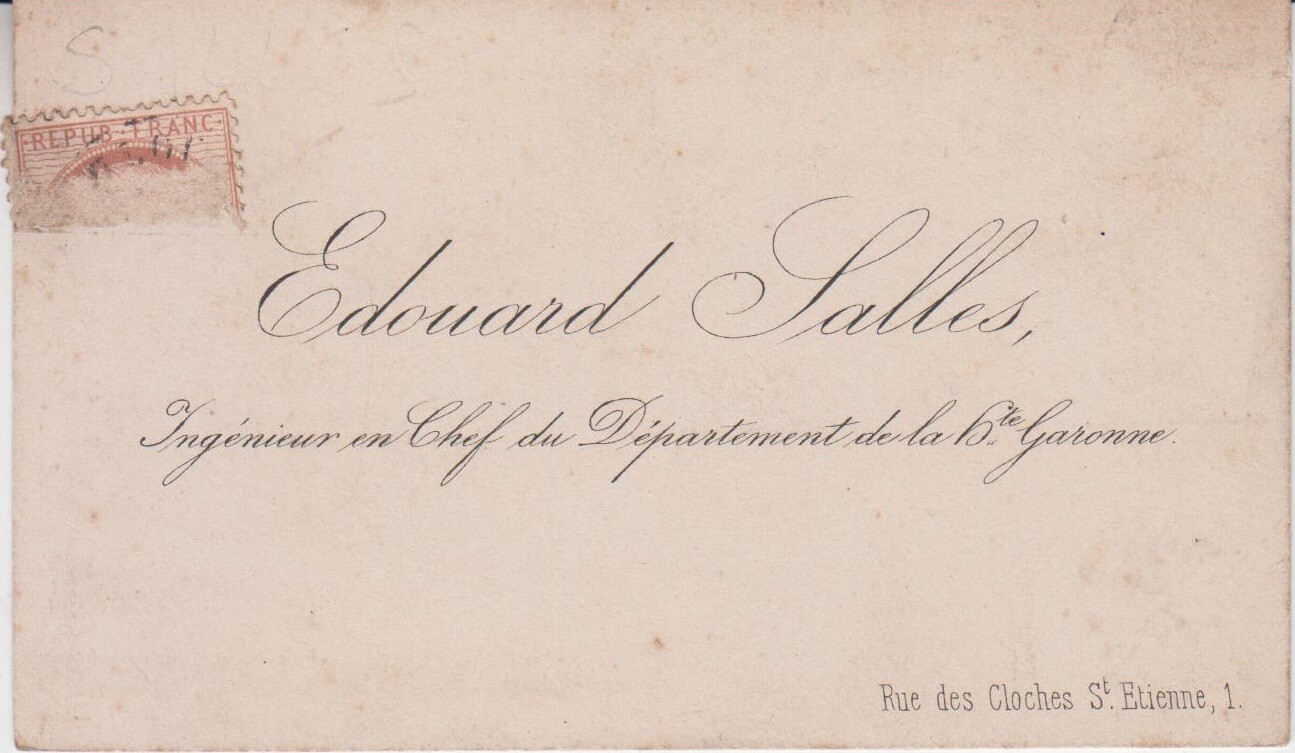 S
REPUB·FRANC
Edouard Salles,
Ingénieur en Chef du Département de la Hte Garonne.
Rue des Cloches St. Etienne, 1.